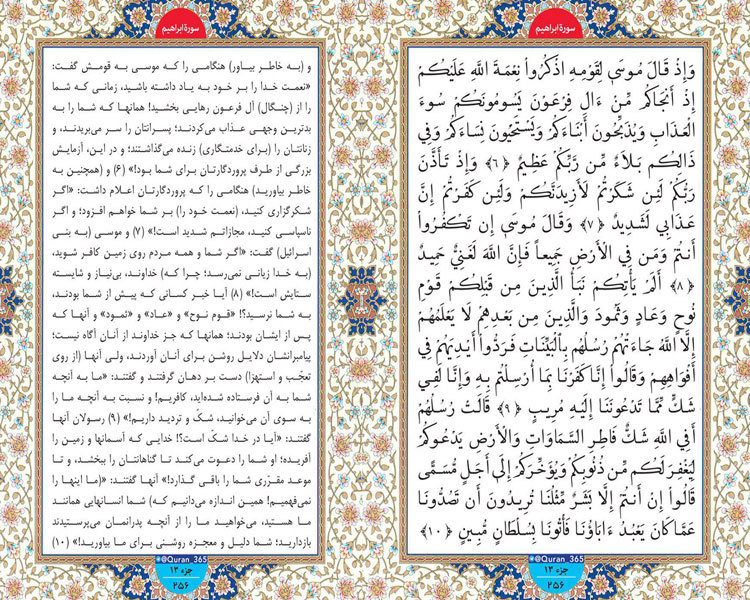 سورة ابراهیم
وَإِذْ قَالَ مُوسَى لِقَوْمِهِ اذْكُرُواْ نِعْمَةَ اللَّهِ عَلَيْكُمْ
إِذْ أَنجَاكُم مِّنْ ءَالِ فِرْعَوْنَ يَسُومُونَكُمْ سُوءَ
الْعَذَابِ وَيُذَبِّحُونَ أَبْنَاءَكُمْ وَيَسْتَحْيُونَ نِسَاءَكُمْ وَفِي
ذَالِكُم بَلَاءٌ مِّن رَّبِّكُمْ عَظِيمٌ ﴿٦﴾ وَإِذْ تَأَذَّنَ
رَبُّكُمْ لَئِن شَكَرْتُمْ لَأَزِيدَنَّكُمْ وَلَئِن كَفَرْتُمْ إِنَّ
عَذَابِي لَشَدِيدٌ ﴿٧﴾ وَقَالَ مُوسَى إِن تَكْفُرُواْ
أَنتُمْ وَمَن فِي الْأَرْضِ جَمِيعاً فَإِنَّ اللَّهَ لَغَنِيٌّ حَمِيدٌ
﴿٨﴾ أَلَمْ يَأْتِكُمْ نَبَأُ الَّذِينَ مِن قَبْلِكُمْ قَوْمِ
نُوحٍ وَعَادٍ وَثَمُودَ وَالَّذِينَ مِن بَعْدِهِمْ لَا يَعْلَمُهُمْ
إِلَّا اللَّهُ جَاءَتْهُمْ رُسُلُهُم بِالْبَيِّنَاتِ فَرَدُّواْ أَيْدِيَهُمْ فِي
أَفْوَاهِهِمْ وَقَالُواْ إِنَّا كَفَرْنَا بِمَا أُرْسِلْتُم بِهِ وَإِنَّا لَفِي
شَكٍّ مِّمَّا تَدْعُونَنَا إِلَيْهِ مُرِيبٍ ﴿٩﴾ قَالَتْ رُسُلُهُمْ
أَفِي اللَّهِ شَكٌّ فَاطِرِ السَّمَاوَاتِ وَالْأَرْضِ يَدْعُوكُمْ
لِيَغْفِرَ لَكُم مِّن ذُنُوبِكُمْ وَيُؤَخِّرَكُمْ إِلَى أَجَلٍ مُّسَمًّى
قَالُواْ إِنْ أَنتُمْ إِلَّا بَشَرٌ مِّثْلُنَا تُرِيدُونَ أَن تَصُدُّونَا
عَمَّا كَانَ يَعْبُدُ ءَابَاؤُنَا فَأْتُونَا بِسُلْطَانٍ مُّبِينٍ ﴿١٠﴾
@Quran_365
جزء ۱۳
۲۵۶
سورة ابراهیم
و (به خاطر بیاور) هنگامی را که موسی به قومش گفت:
«نعمت خدا را بر خود به یاد داشته باشید، زمانی که شما
را از (چنگال) آل فرعون رهایی بخشید! همانها که شما را به
بدترین وجهی عذاب می‌کردند؛ پسرانتان را سر می‌بریدند، و
زنانتان را (برای خدمتگاری) زنده می‌گذاشتند؛ و در این، آزمایش
بزرگی از طرف پروردگارتان برای شما بود!» (۶) و (همچنین به
خاطر بیاورید) هنگامی را که پروردگارتان اعلام داشت: «اگر
شکرگزاری کنید، (نعمت خود را) بر شما خواهم افزود؛ و اگر
ناسپاسی کنید، مجازاتم شدید است!» (۷) و موسی (به بنی
اسرائیل) گفت: «اگر شما و همه مردم روی زمین کافر شوید،
(به خدا زیانی نمی‌رسد؛ چرا که) خداوند، بی‌نیاز و شایسته
ستایش است!» (۸) آیا خبر کسانی که پیش از شما بودند،
به شما نرسید؟! «قوم نوح» و «عاد» و «ثمود» و آنها که
پس از ایشان بودند؛ همانها که جز خداوند از آنان آگاه نیست؛
پیامبرانشان دلایل روشن برای آنان آوردند، ولی آنها (از روی
تعجّب و استهزا) دست بر دهان گرفتند و گفتند: «ما به آنچه
شما به آن فرستاده شده‌اید، کافریم! و نسبت به آنچه ما را
به سوی آن می‌خوانید، شکّ و تردید داریم!» (۹) رسولان آنها
گفتند: «آیا در خدا شکّ است؟! خدایی که آسمانها و زمین را
آفریده؛ او شما را دعوت می‌کند تا گناهانتان را ببخشد، و تا
موعد مقرّری شما را باقی گذارد!» آنها گفتند: «(ما اینها را
نمی‌فهمیم! همین اندازه می‌دانیم که) شما انسانهایی همانند
ما هستید، می‌خواهید ما را از آنچه پدرانمان می‌پرستیدند
بازدارید؛ شما دلیل و معجزه روشنی برای ما بیاورید!» (۱۰)
@Quran_365
جزء ۱۳
۲۵۶